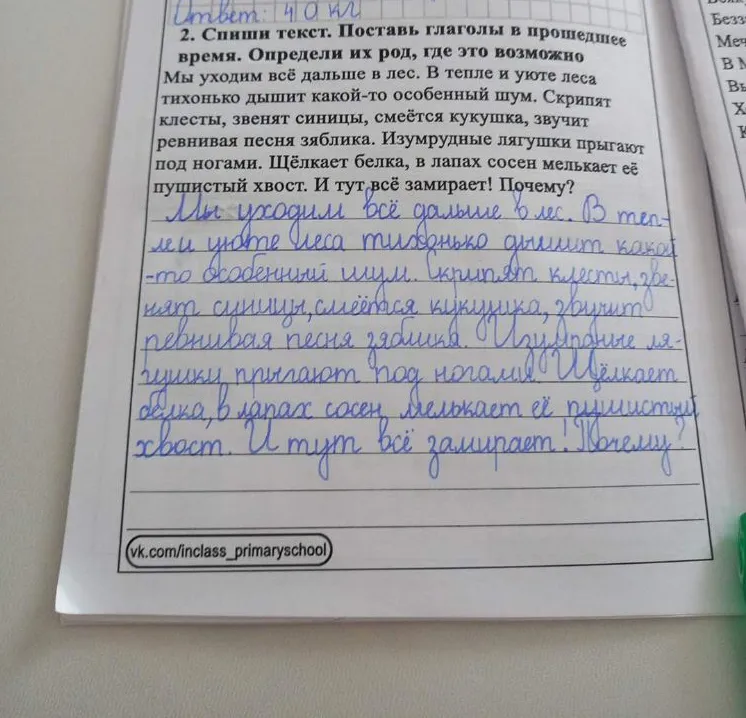 Ответ: 40 кг
2. Спиши текст. Поставь глаголы в прошедшее
время. Определи их род, где это возможно
Мы уходим всё дальше в лес. В тепле и уюте леса
тихонько дышит какой-то особенный шум. Скрипят
клесты, звенят синицы, смеётся кукушка, звучит
ревнивая песня зяблика. Изумрудные лягушки прыгают
под ногами. Щёлкает белка, в лапах сосен мелькает её
пушистый хвост. И тут всё замирает! Почему?
Мы уходим всё дальше в лес. В теп-
ле и уюте леса тихонько дышит какой
-то особенный шум. Скрипят клесты, зве-
нят синицы, смеётся кукушка, звучит
ревнивая песня зяблика. Изумрудные ля-
гушки прыгают под ногами. Щёлкает
белка, в лапах сосен мелькает её пушистый
хвост. И тут всё замирает! Почему?
vk.com/inclass_primaryschool
Безз
Меч
В
Вы
Х